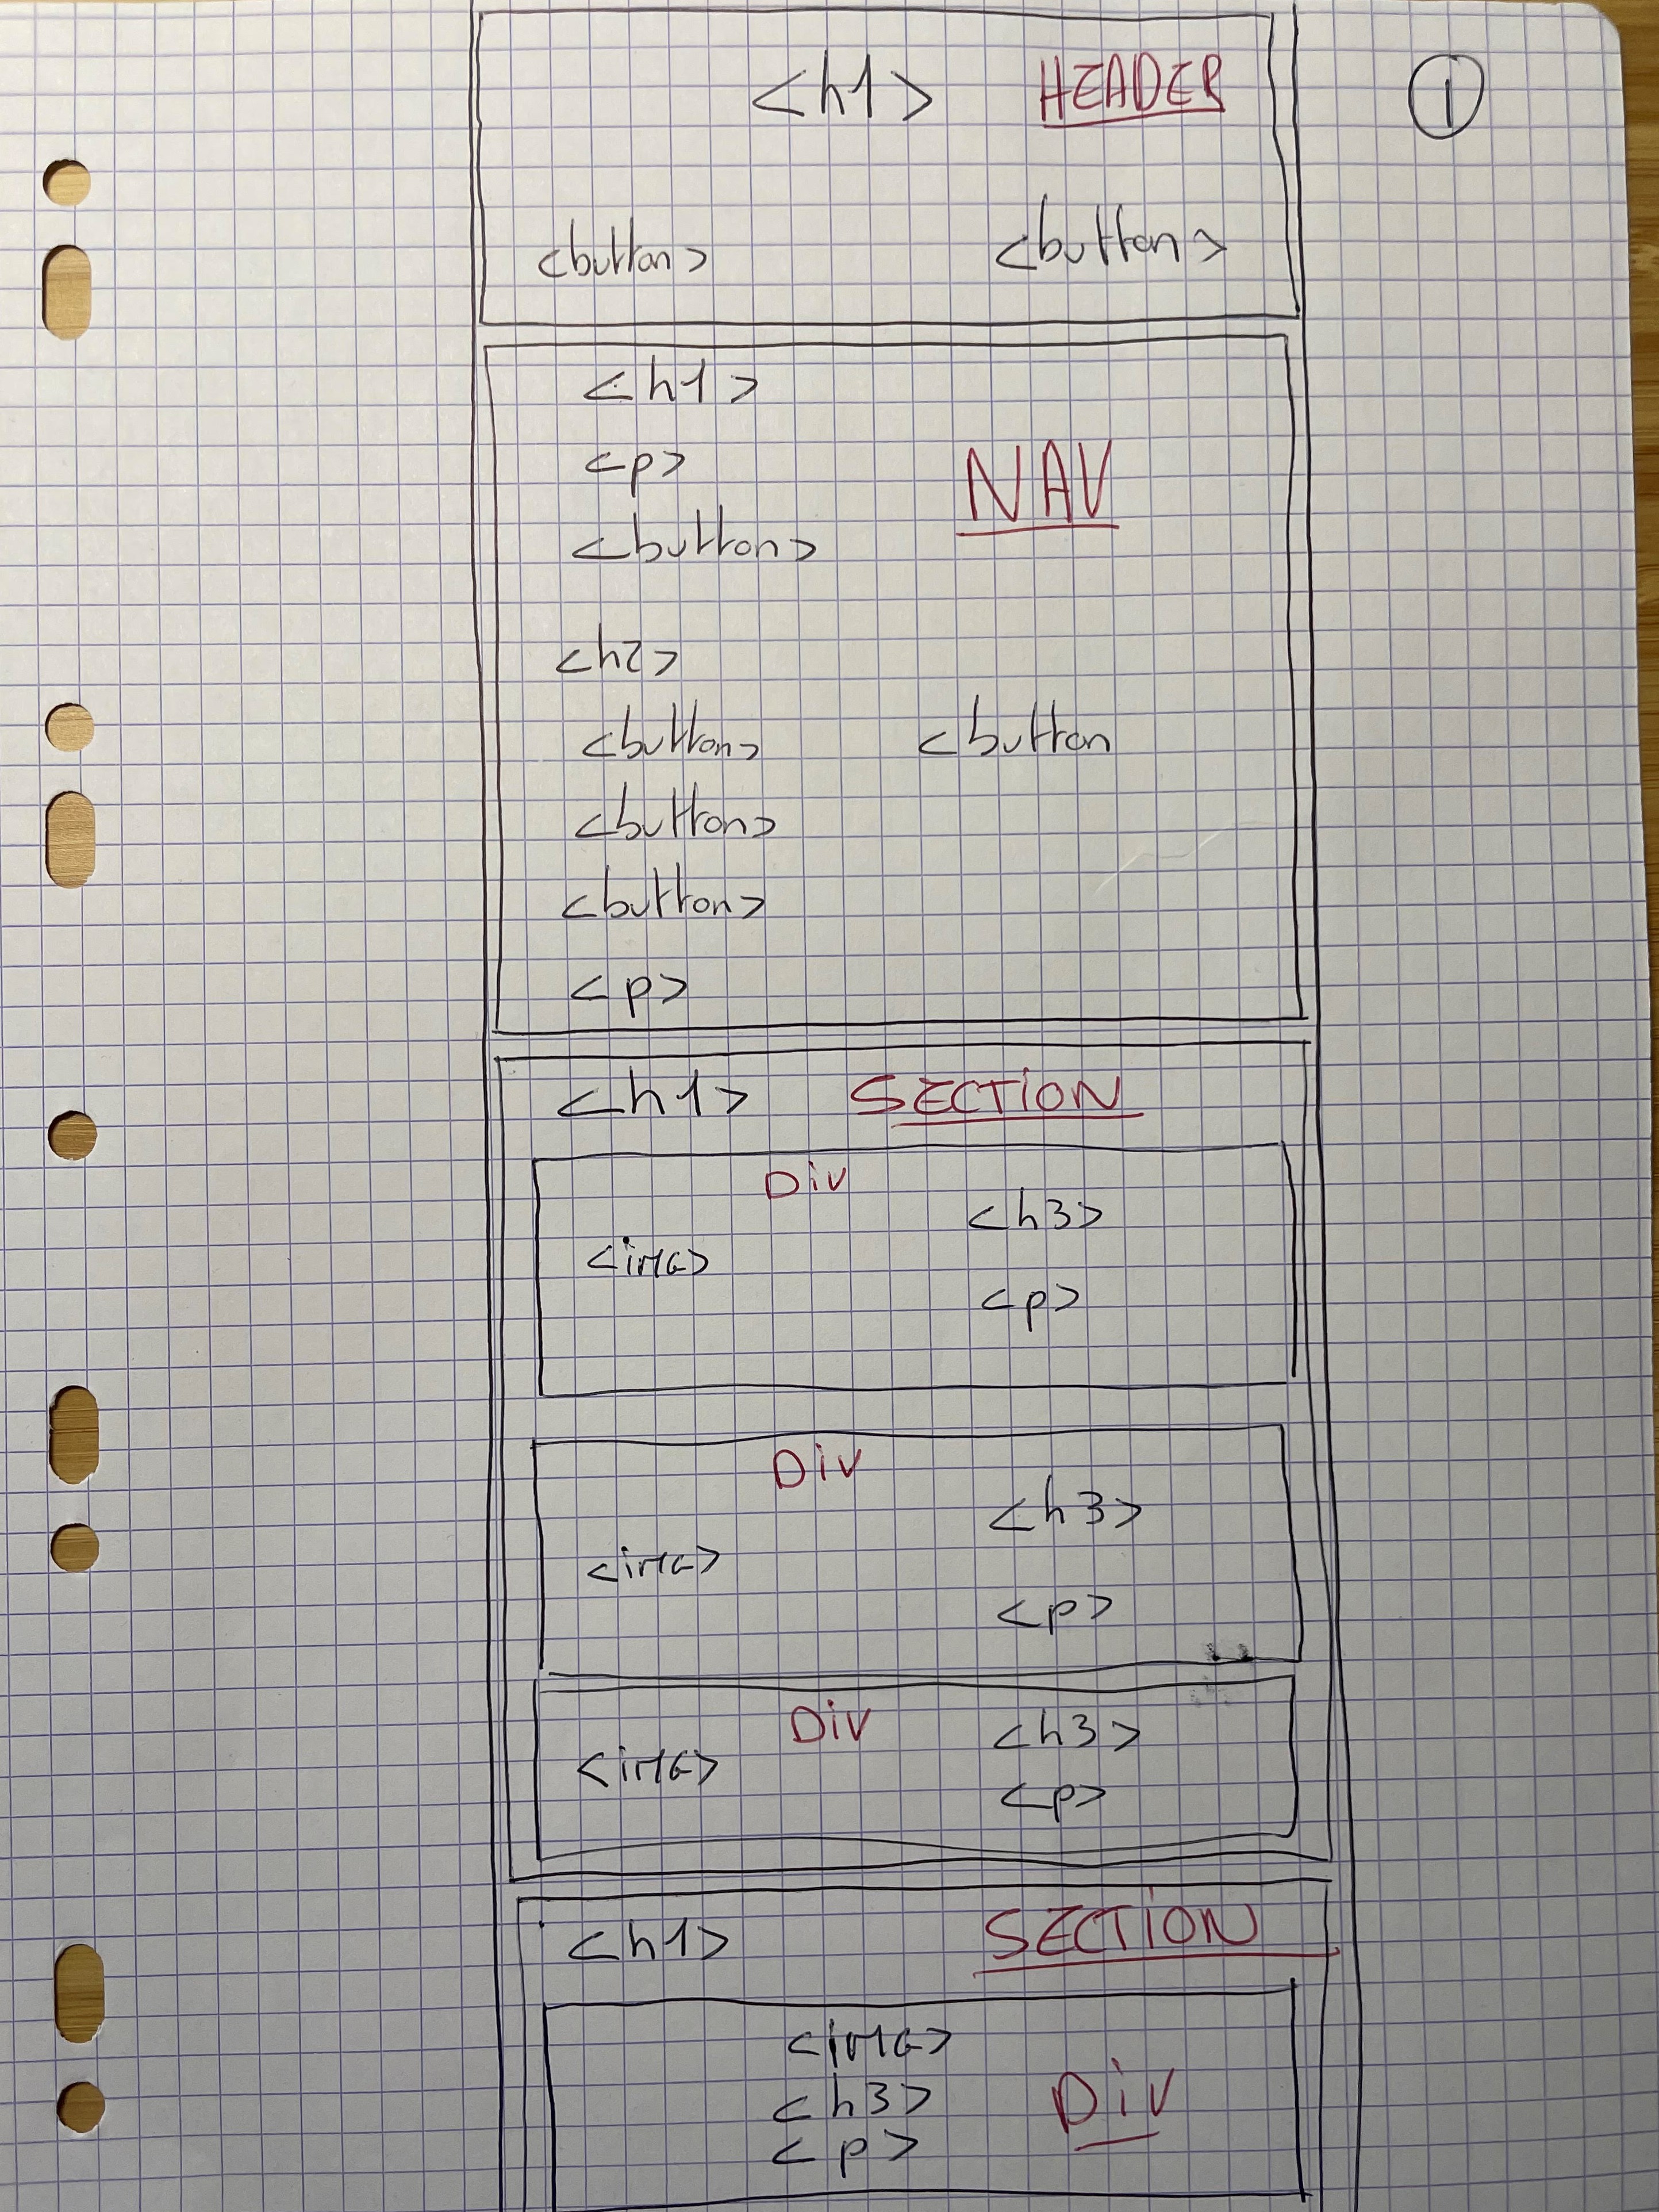 <h1> HEADER
1
<button> <button>
<h1>
<p>
NAV
<button>
<h2>
<button> <button
<button>
<button>
<p>
<h1> SECTION
Div
<h3>
<imG>
<p>
Div
<h3>
<imG>
<p>
Div
<h3>
<imG>
<p>
<h1> SECTION
<imG>
<h3>
Div
<p>